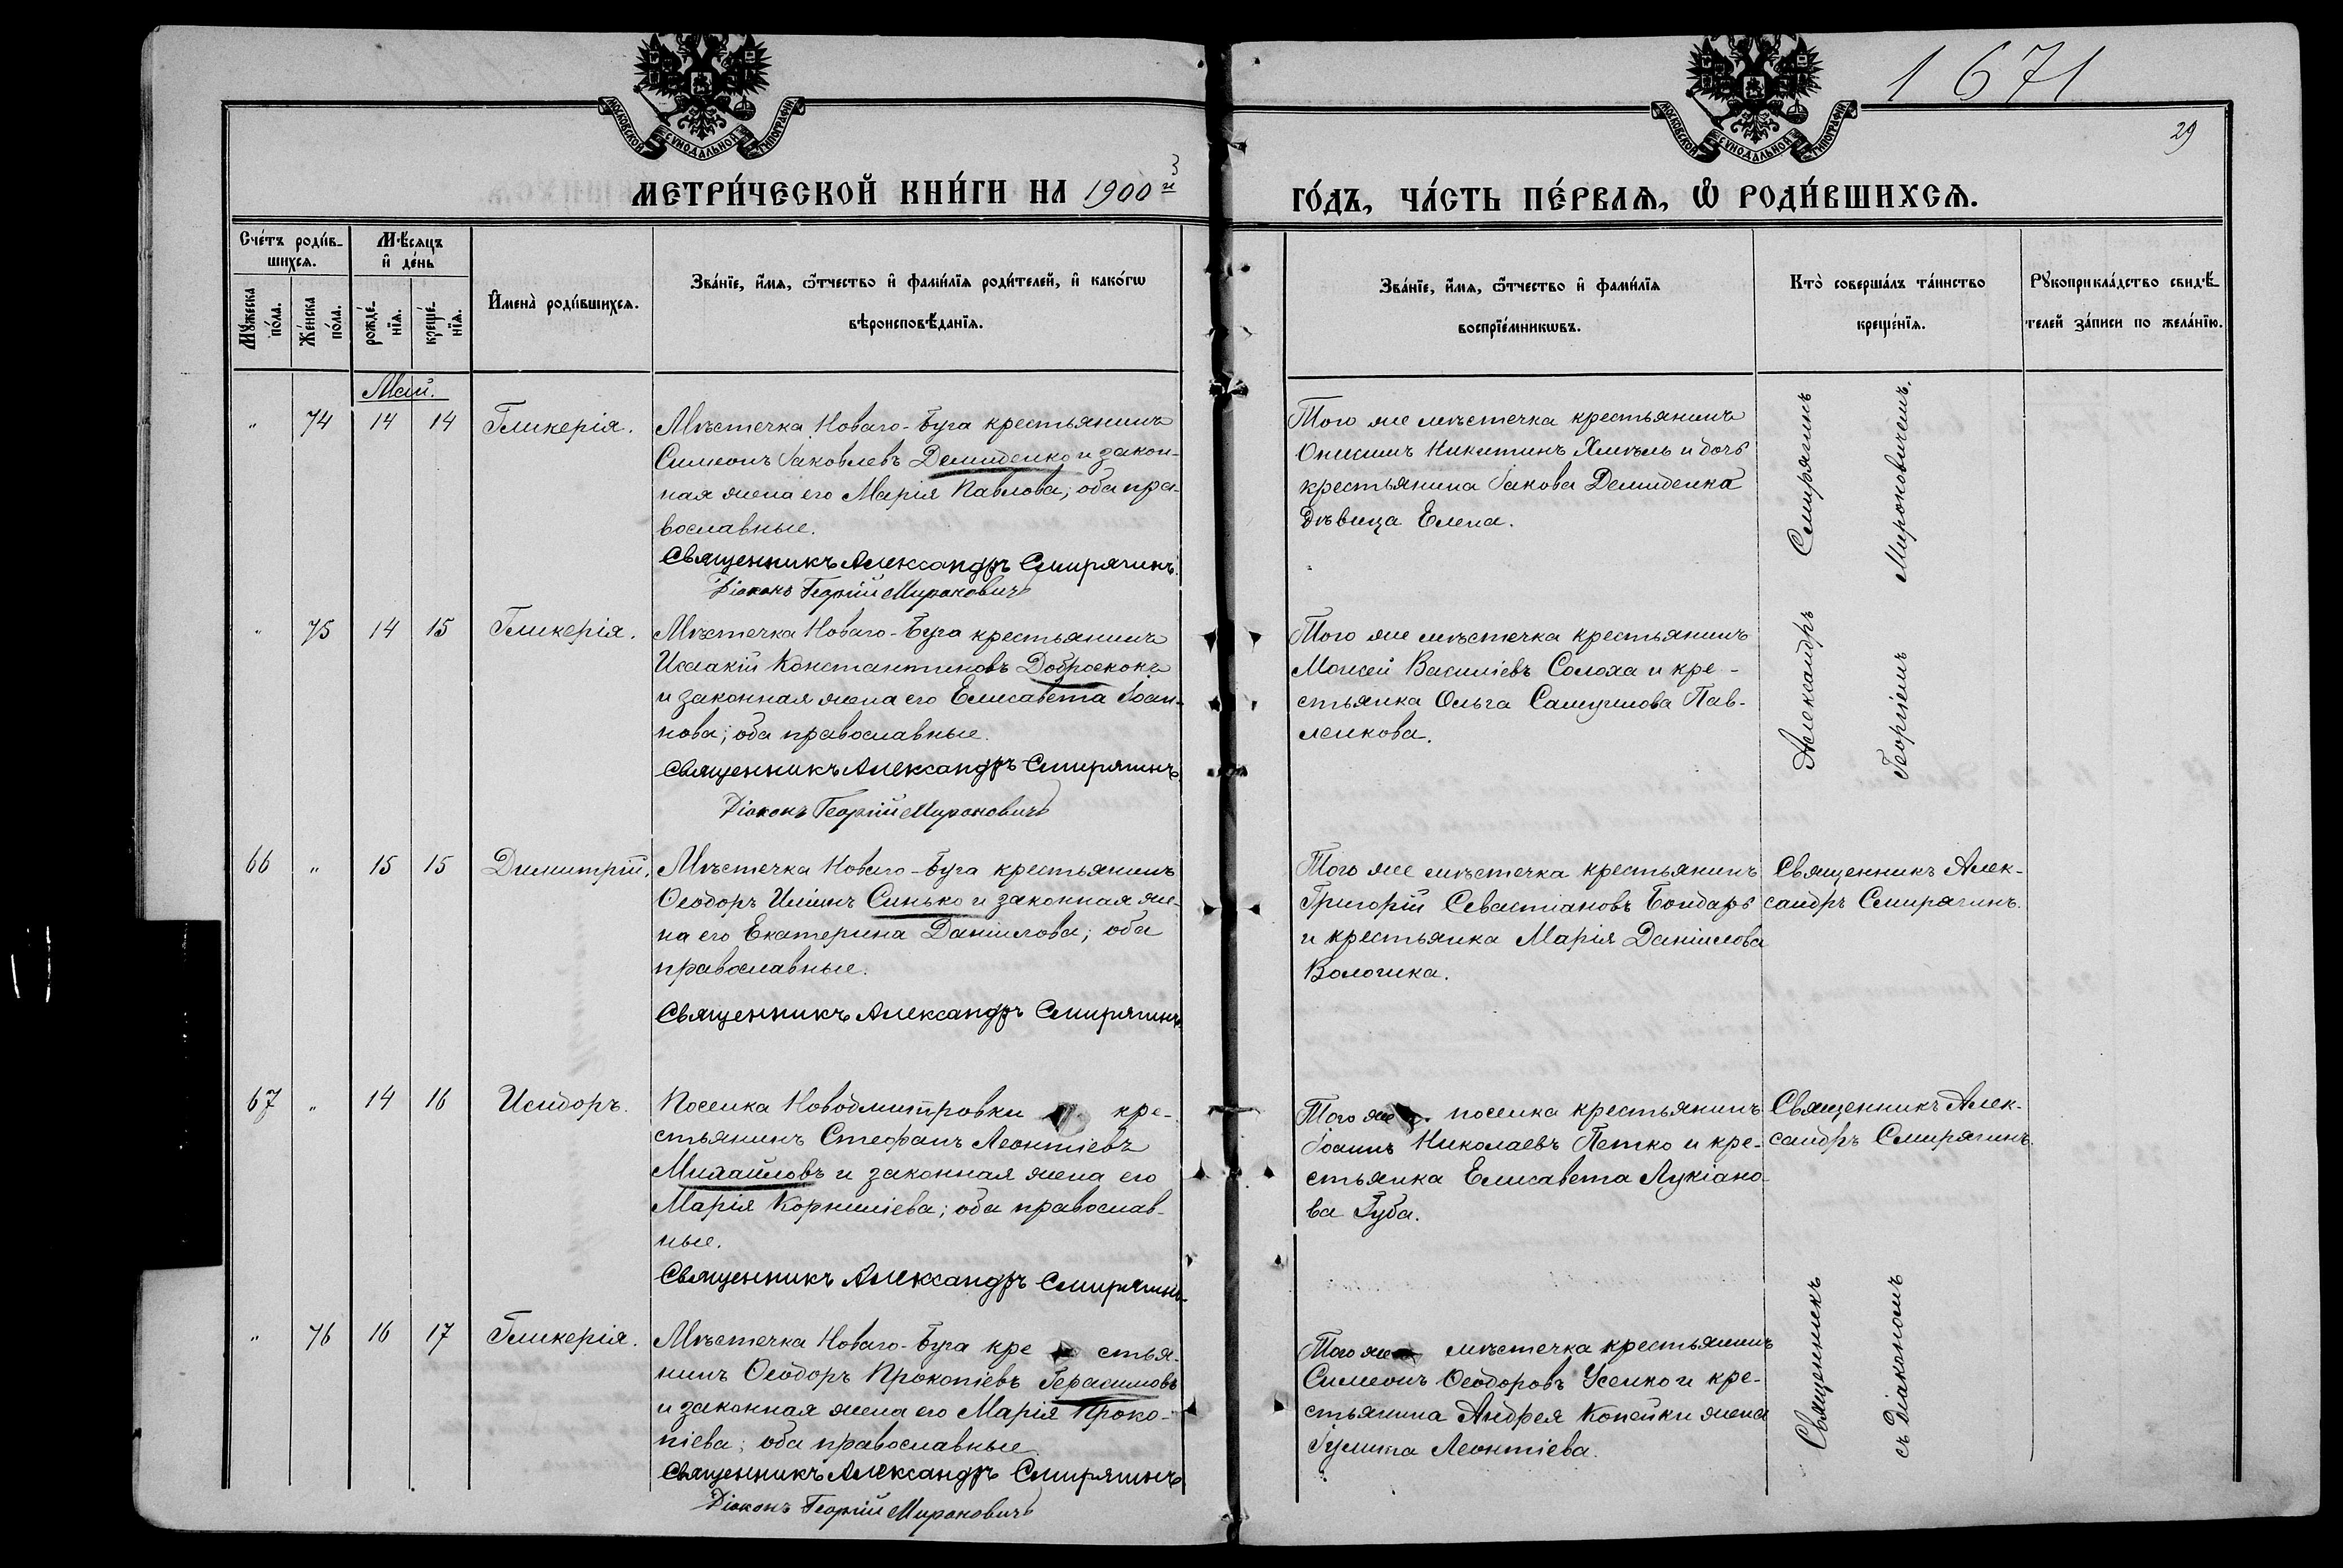 1671
29
МОСКОВСКОЙ СѴНОДАЛЬНОЙ ТИПОГРАФІИ
МОСКОВСКОЙ СѴНОДАЛЬНОЙ ТИПОГРАФІИ
МЕТРИ́ЧЕСКОЙ КНИ́ГИ НА 1900 3 й
ГО́ДЪ, ЧА́СТЬ ПЕ́РВАѦ, Ѽ РОДИ́ВШИХСѦ.
Сче́тъ роди́в-
шихсѧ.
Мѣ́сѧцъ
и҆ де́нь
Мꙋ́жеска
по́ла.
Же́нска
по́ла.
рожде́-
нїѧ.
креще́-
нїѧ.
И҆мена̀ роди́вшихсѧ.
Зва́нїе, и҆́мѧ, ѻ҆́тчество и҆ фами́лїѧ роди́телей, и҆ како́гѡ
вѣроисповѣ́данїѧ.
Зва́нїе, и҆́мѧ, ѻ҆́тчество и҆ фами́лїѧ
воспрїе́мникѡвъ.
Кто̀ соверша́лъ та́инство
креще́нїѧ.
Рꙋкоприкла́дство свидѣ́-
телей за́писи по жела́нїю.
Май.
" 74 14 14 Гликерія.
Мѣстечка Новаго-Буга крестьянинъ
Симеонъ Іаковлевъ Демиденко и закон-
ная жена его Марія Павлова; оба пра-
вославные.
Священникъ Александръ Смирягинъ
Діаконъ Георгій Мироновичъ
Того же мѣстечка крестьянинъ
Онисимъ Никитинъ Хмѣль и дочь
крестьянина Іакова Демиденка
дѣвица Елена.
" 75 14 15 Гликерія.
Мѣстечка Новаго-Буга крестьянинъ
Исаакій Константиновъ Доброеконь
и законная жена его Елисавета Іоан-
нова; оба православные.
Священникъ Александръ Смирягинъ
Діаконъ Георгій Мироновичъ
Того же мѣстечка крестьянинъ
Моисей Василіевъ Солоха и кре-
стьянка Ольга Самуилова Пав-
ленкова.
66 " 15 15 Димитрій.
Мѣстечка Новаго-Буга крестьянинъ
Ѳеодоръ Иліинъ Синько и законная же-
на его Екатерина Даніилова; оба
православные.
Священникъ Александръ Смирягинъ
Того же мѣстечка крестьянинъ
Григорій Севастіановъ Бондарь
и крестьянка Марія Даніилова
Священникъ Алек-
сандръ Смирягинъ.
67 " 14 16 Исидоръ.
Поселка Новодмитровки кре-
стьянинъ Стефанъ Леонтіевъ
Михайловъ и законная жена его
Марія Корниліева; оба православ-
ные.
Священникъ Александръ Смирягинъ
Того же поселка крестьянинъ
Іоаннъ Николаевъ Петко и кре-
стьянка Елисавета Лукіано-
ва Губа.
Священникъ Алек-
сандръ Смирягинъ.
" 76 16 17 Гликерія.
Мѣстечка Новаго-Буга кре стья-
нинъ Ѳеодоръ Прокопіевъ Герасимовъ
и законная жена его Марія Проко-
піева; оба православные.
Священникъ Александръ Смирягинъ
Діаконъ Георгій Мироновичъ
Того же мѣстечка крестьянинъ
Симеонъ Ѳеодоровъ Усенко и кре-
стьянина Андрея Копейки жена
Іулита Леонтіева.
Священникъ Александръ Смирягинъ
съ Діакономъ Георгіемъ Мироновичемъ.